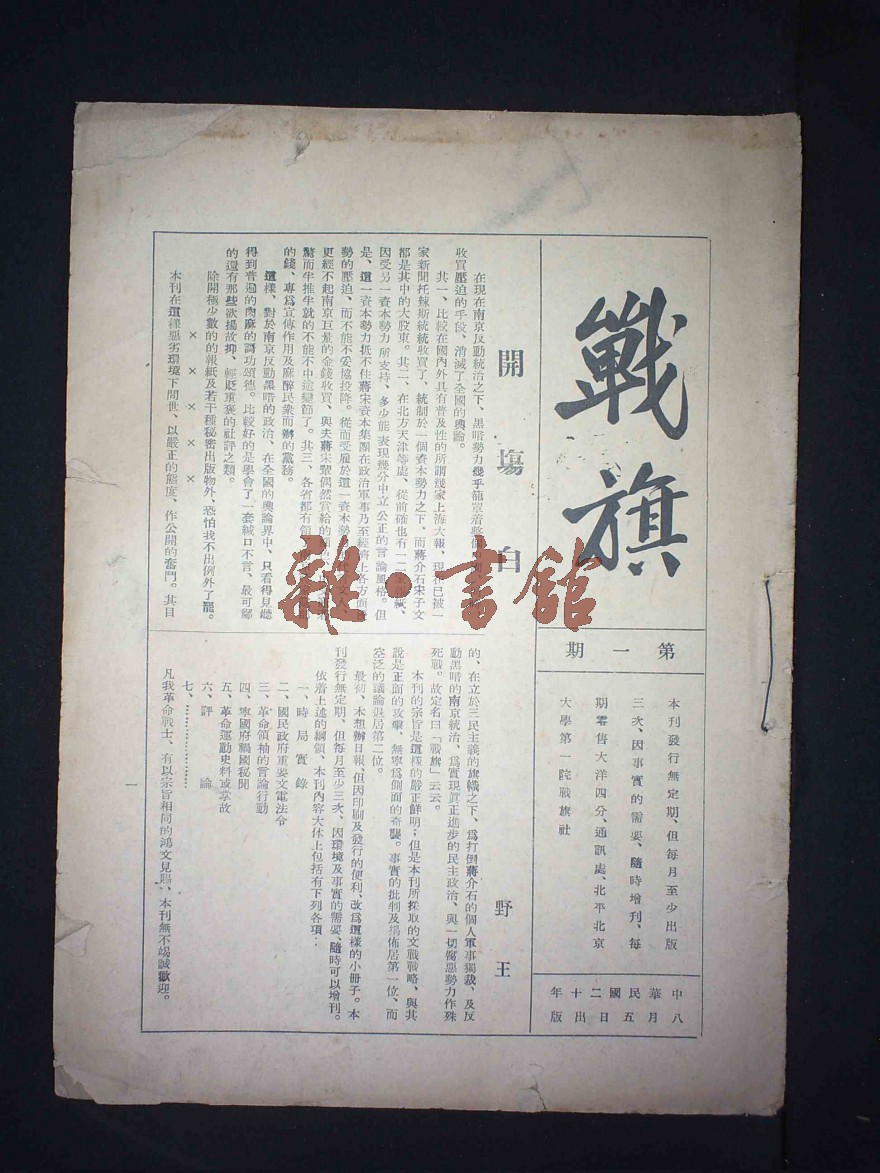 戰旗
第一期
本刊發行無定期、但每月至少出版
三次、因事實的需要、隨時增刊、每
期零售大洋四分、通訊處、北平北京
大學第一院戰旗社
中華民國二十年
八月五日出版
開塲白
野王
在現在南京反動統治之下、黑暗勢力幾乎籠罩着整個
收買壓迫的手段、消滅了全國的輿論。
其一、比較在國內外具有普及性的所謂幾家上海大報、現在已被一
家新聞托辣斯統統收買了、統制於一個資本勢力之下、而蔣介石宋子文
都是其中的大股東。其二、在北方天津等處、從前確也有一二家報紙、
因受另一資本勢力所支持、多少能表現幾分中立公正的言論風格。但
是、這一資本勢力抵不住蔣宋資本集團在政治軍事乃至經濟上各方面
勢的壓迫、而不能不妥協投降。從而受雇於這一資本勢力文人、
更經不起南京巨量的金錢收買、與夫蔣宋輩偶然賞給的
驚而半推半就的不能不中途變節了。其三、各省都有領
的錢、專爲宣傳作用及麻醉民衆而辦的黨務。
這樣、對於南京反動黑暗的政治、在全國的輿論界中、只看得見聽
得到普遍的肉麻的謌功頌德。比較好的是學會了一套緘口不言、最可鄙
的還有那些欲揚故抑、輕貶重褒的社評之類。
除開極少數的的報紙及若干種秘密出版物外、恐怕我不出例外了罷。
× × × × ×
本刊在這樣惡劣環境下問世、以嚴正的態度、作公開的奮鬥。其目
的、在立於三民主義的旗幟之下、爲打倒蔣介石的個人軍事獨裁、及反
動黑暗的南京統治、爲實現眞正進步的民主政治、與一切腐惡勢力作殊
死戰。故定名曰「戰旗」云云。
本刊的宗旨是這樣的嚴正鮮明；但是本刊所採取的文戰戰略、與其
說是正面的攻擊、無寧爲側面的奇襲。事實的批判及揭佈居第一位、而
空泛的議論退居第二位。
最初、本想辦日報、但因印刷及發行的便利、改爲這樣的小冊子。本
刊發行無定期、但每月至少三次、因環境及事實的需要、隨時可以增刊。
依着上述的綱領、本刊內容大体上包括有下列各項：
一、時局實錄
二、國民政府重要文電法令
三、革命領袖的言論行動
四、寧國府禍國秘聞
五、革命運動史料或掌故
六、評論
七、………………
凡我革命戰士、有以宗旨相同的鴻文見賜、本刊無不竭誠歡迎。
一
雜·書館